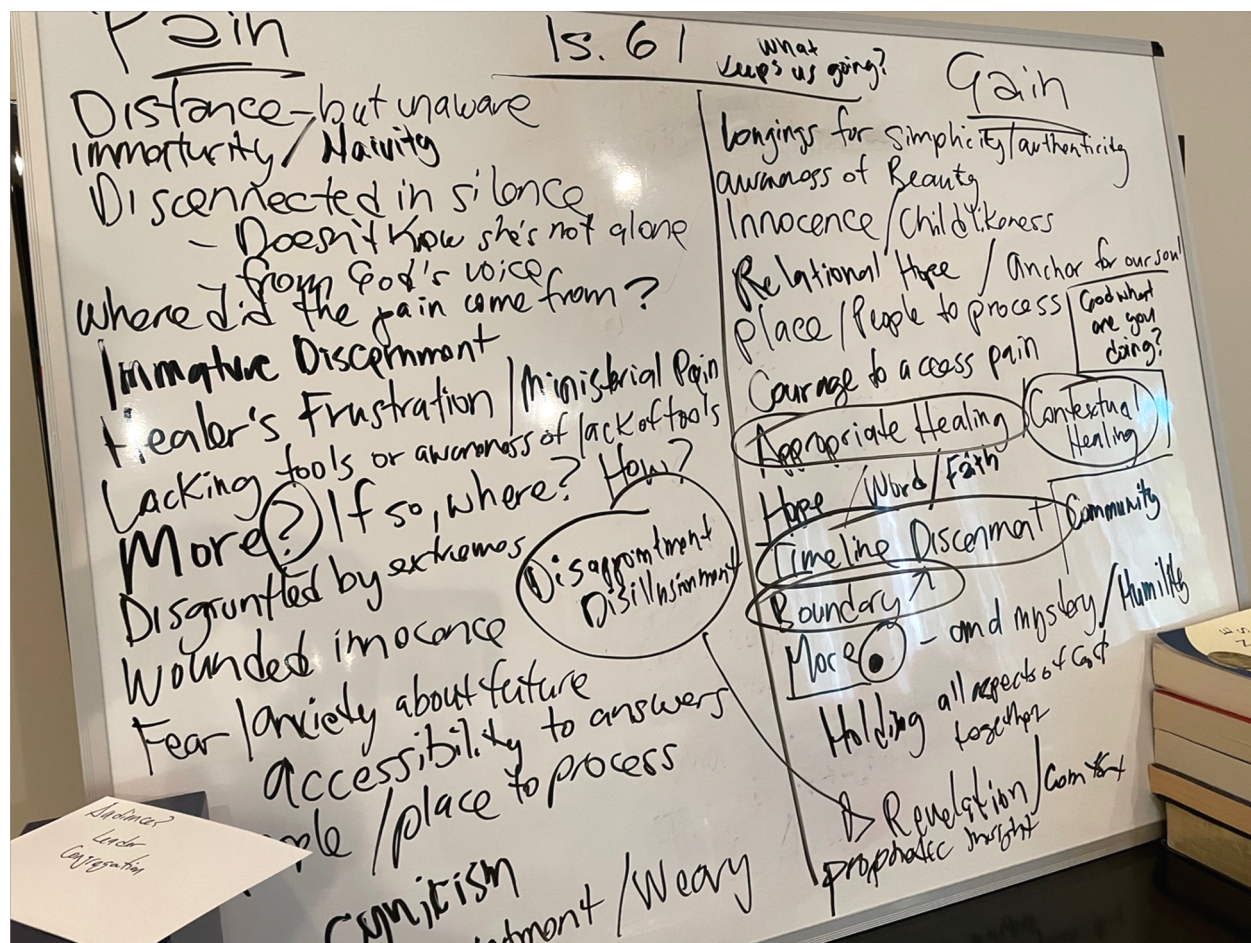 Pain
Is. 61
what
keeps us going?
Gain
Distance - but unaware
Immorturity / Naivity
Disconnected in silence
- Doesn't know she's not alone
from God's voice
Where did the pain come from?
Immature Discernment
Healer's Frustration / Ministerial Pain
Lacking tools or awareness of lack of tools
More ? If so, where? How?
Disgruntled by extremes
Disappointment
Disillusionment
Wounded innocence
Fear / anxiety about future
accessibility to answers
/ place to process
cynicism
/ Weary
Longings for simplicity / authenticity
awareness of Beauty
Innocence / Childlikeness
Relational Hope / Anchor for our soul
place / People to process
God what
are you
doing?
Courage to access pain
Appropriate Healing
Contextual
Healing
Hope / Word / Faith
Timeline Discernment
Community
Boundary
More . - and mystery / Humility
Holding all aspects of God
together
Revelation / Comfort
prophetic insight
Audience?
Leader
Congregation